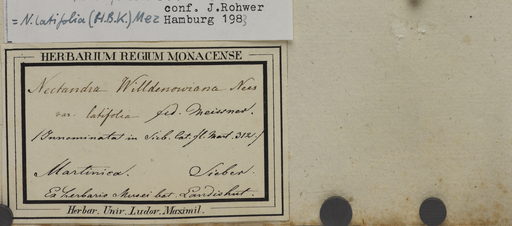 conf. J. Rohwer
= N. latifolia (H.B.K.) Mez Hamburg 1983
HERBARIUM REGIUM MONACENSE
Nectandra Willdenowiana Nees
var. latifolia fid. Meissner.
(Innominata in Sieb. lat. fl. Mart. 312.)
Martinica. Sieber.
Ex herbario Musei bot. Landishut.
Herbar. Univ. Ludov. Maximil.